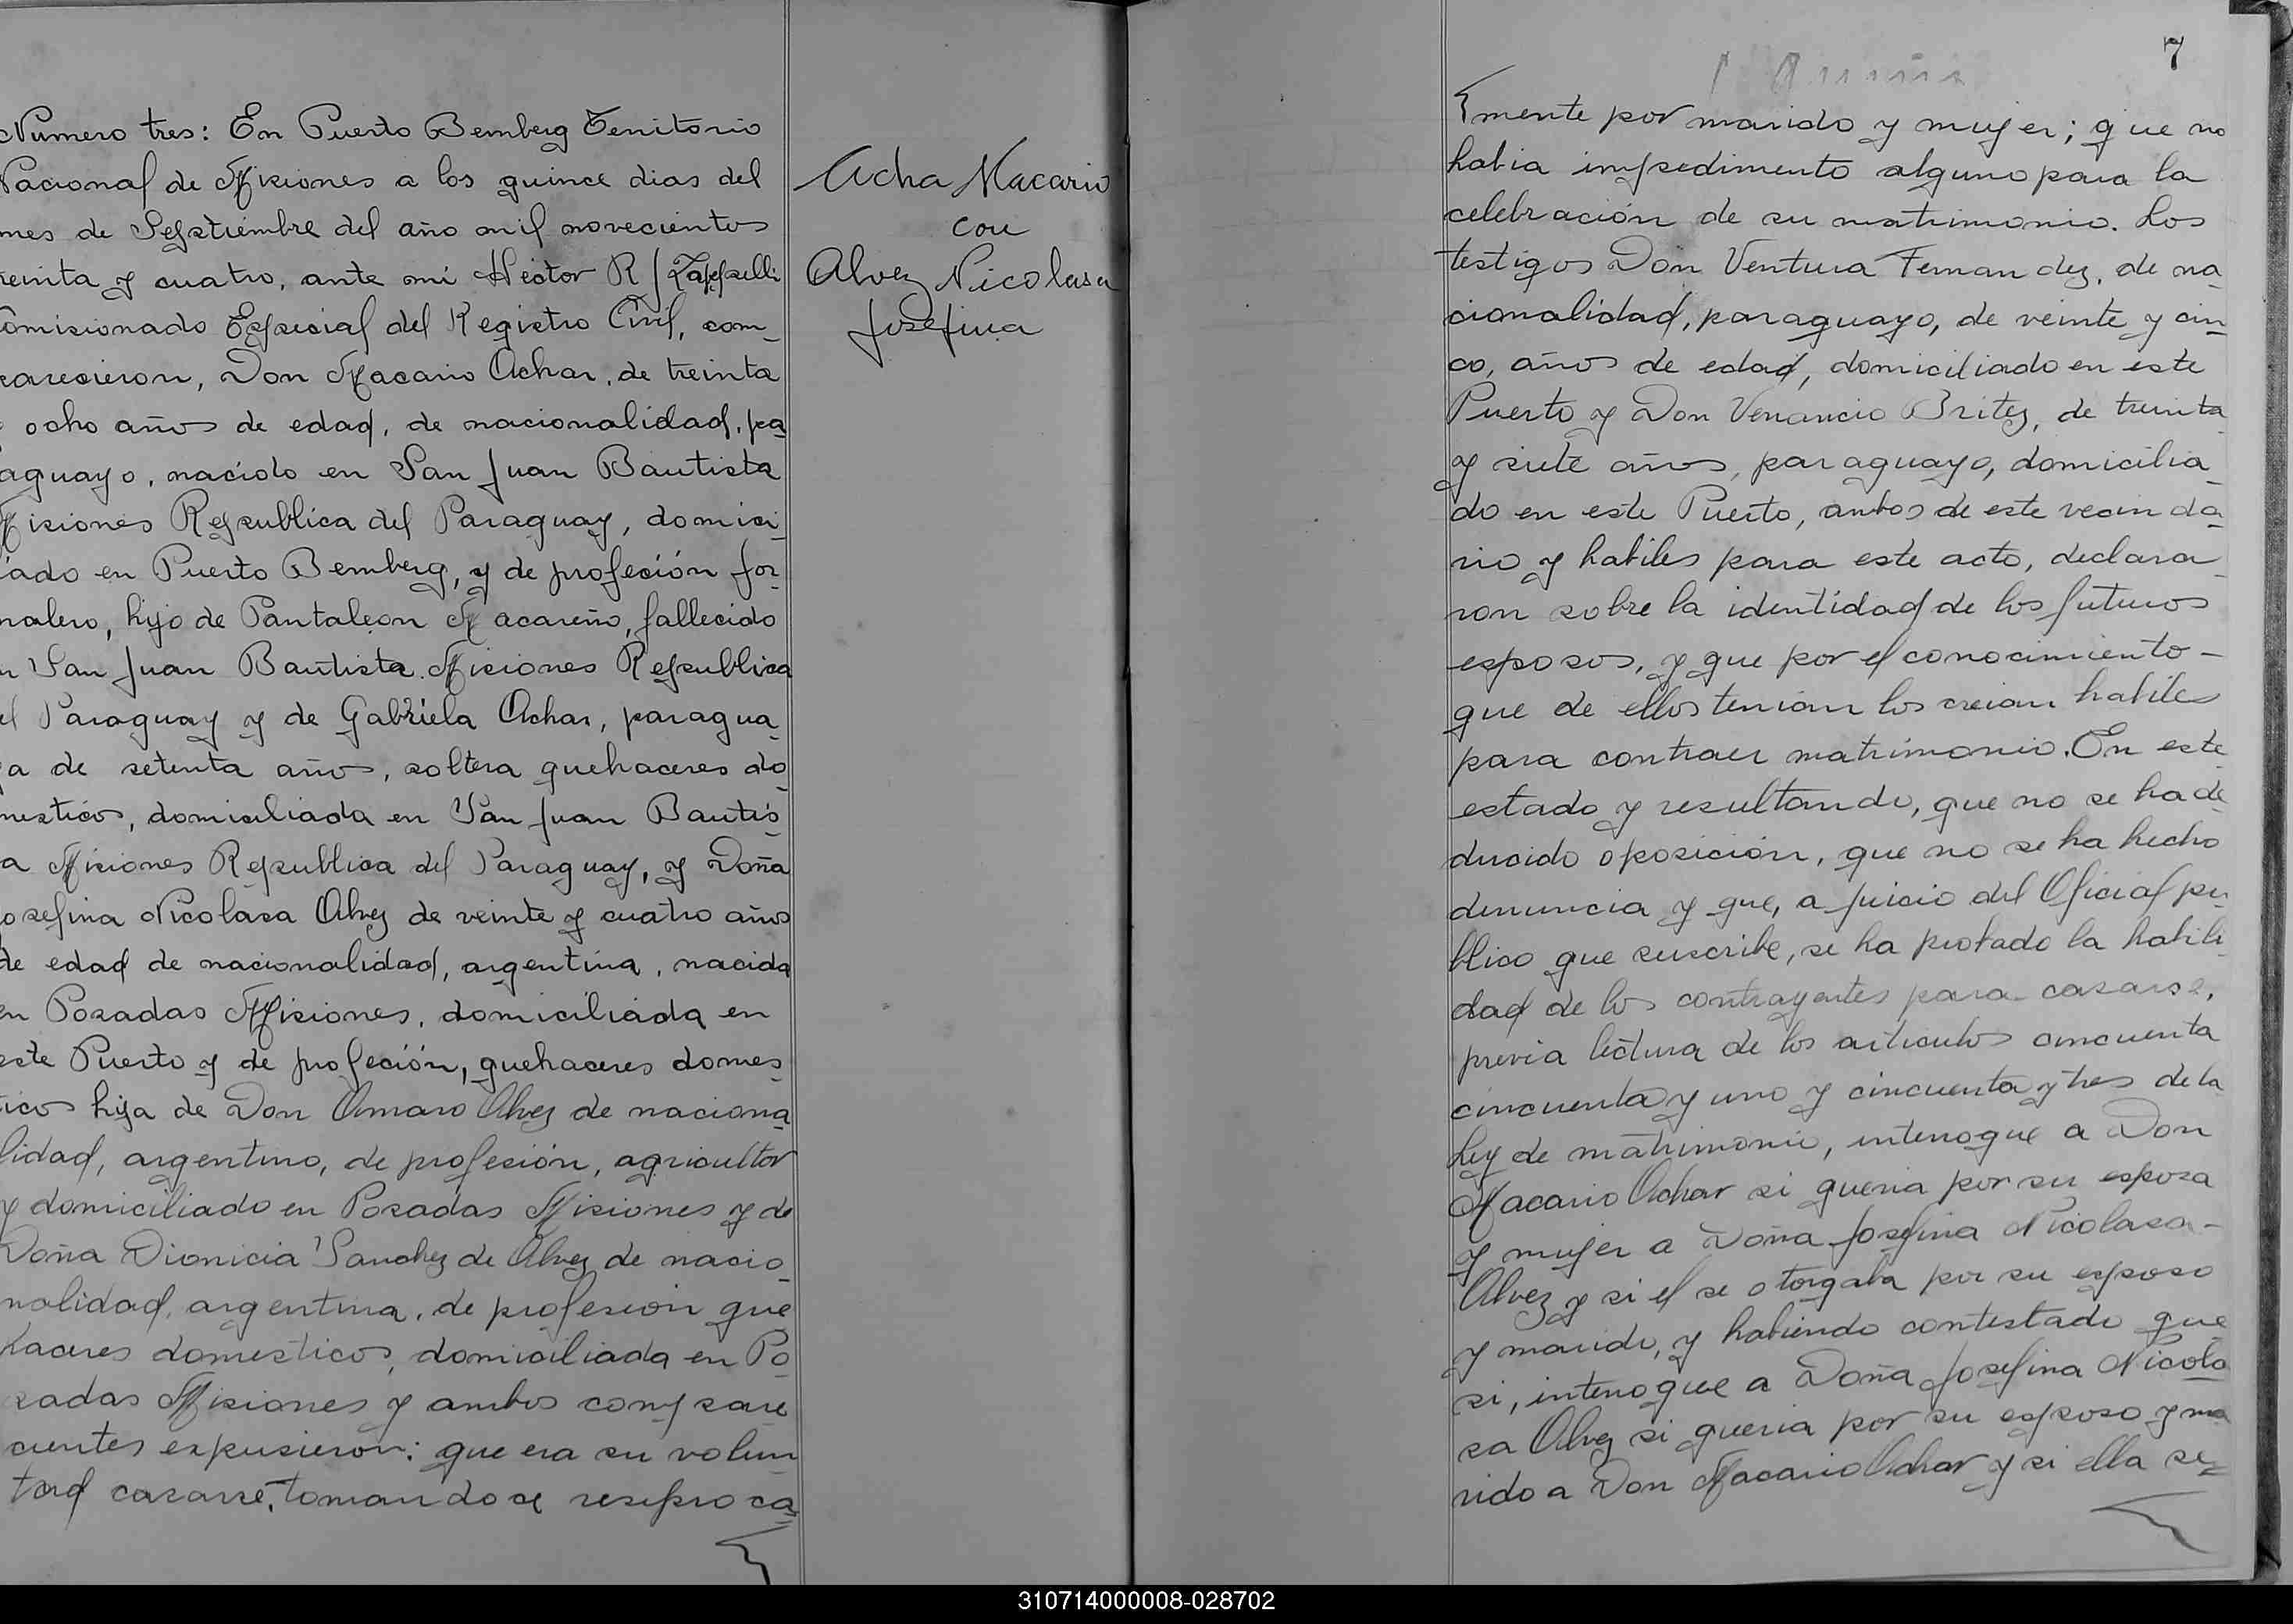 Numero tres: En Puerto Bemberg Territorio
Nacional de Misiones a los quince dias del
mes de Septiembre del año mil novecientos
reinta y cuatro, ante mi Héctor R Zappelli
omisionado Especial del Registro Civil, com_
parecieron, Don Macario Achar, de treinta
y ocho años de edad, de nacionalidad, pa
aguayo, nacido en San Juan Bautista
Misiones Republica del Paraguay, domici_
iado en Puerto Bemberg, y de profeción jor_
nalero, hijo de Pantaleon Macareño, fallecido
n San Juan Bautista Misiones Republica
el Paraguay y de Gabriela Achar, paragua_
ya de setenta años, soltera quehaceres do_
mesticos, domiciliada en San Juan Bautis_
a Misiones Republica del Paraguay, y Doña
osefina Nicolasa Alvez de veinte y cuatro años
de edad de nacionalidad, argentina, nacida
en Posadas Misiones, domiciliada en
este Puerto y de profeción, quehaceres domes_
ticos hija de Don Amaro Alvez de naciona_
lidad, argentino, de profesión, agricultor
y domiciliado en Posadas Misiones y de
Doña Dionicia Sanchez de Alvez de nacio_
nalidad, argentina, de profesion que
haceres domesticos, domiciliada en Po_
sadas Misiones y ambos compare
cientes expusieron: que era su volun
tad casarse, tomandose resiproca_
Acha Macario
con
Alvez Nicolasa
Josefina
7
mente por marido y mujer; que no
habia impedimento alguno para la
celebración de su matrimonio. Los
testigos Don Ventura Fernandez, de na_
cionalidad, paraguayo, de veinte y cin_
co, años de edad, domiciliado en este
Puerto y Don Venancio Britez, de treinta
y siete años, paraguayo, domicilia_
do en este Puerto, ambos de este vecinda_
rio y habiles para este acto, declara_
ron sobre la identidad de los futuros
esposos, y que por el conocimiento -
que de ellos tenian los creian habiles
para contraer matrimonio. En este
estado y resultando, que no se ha de_
ducido oposición, que no se ha hecho
denuncia y que, a juicio del Oficial pu_
blico que suscribe, se ha probado la habili_
dad de los contrayentes para casarse,
previa lectura de los articulos cincuenta
cincuenta y uno y cincuenta y tres de la
Ley de matrimonio, interrogue a Don
Macario Achar si queria por su esposa
y mujer a Doña Josefina Nicolasa -
Alvez y si el se otorgaba por su esposo
y marido, y habiendo contestado que
si, interrogue a Doña Josefina Nicola_
sa Alvez si queria por su esposo y ma_
rido a Don Macario Achar y si ella se_
310714000008-028702